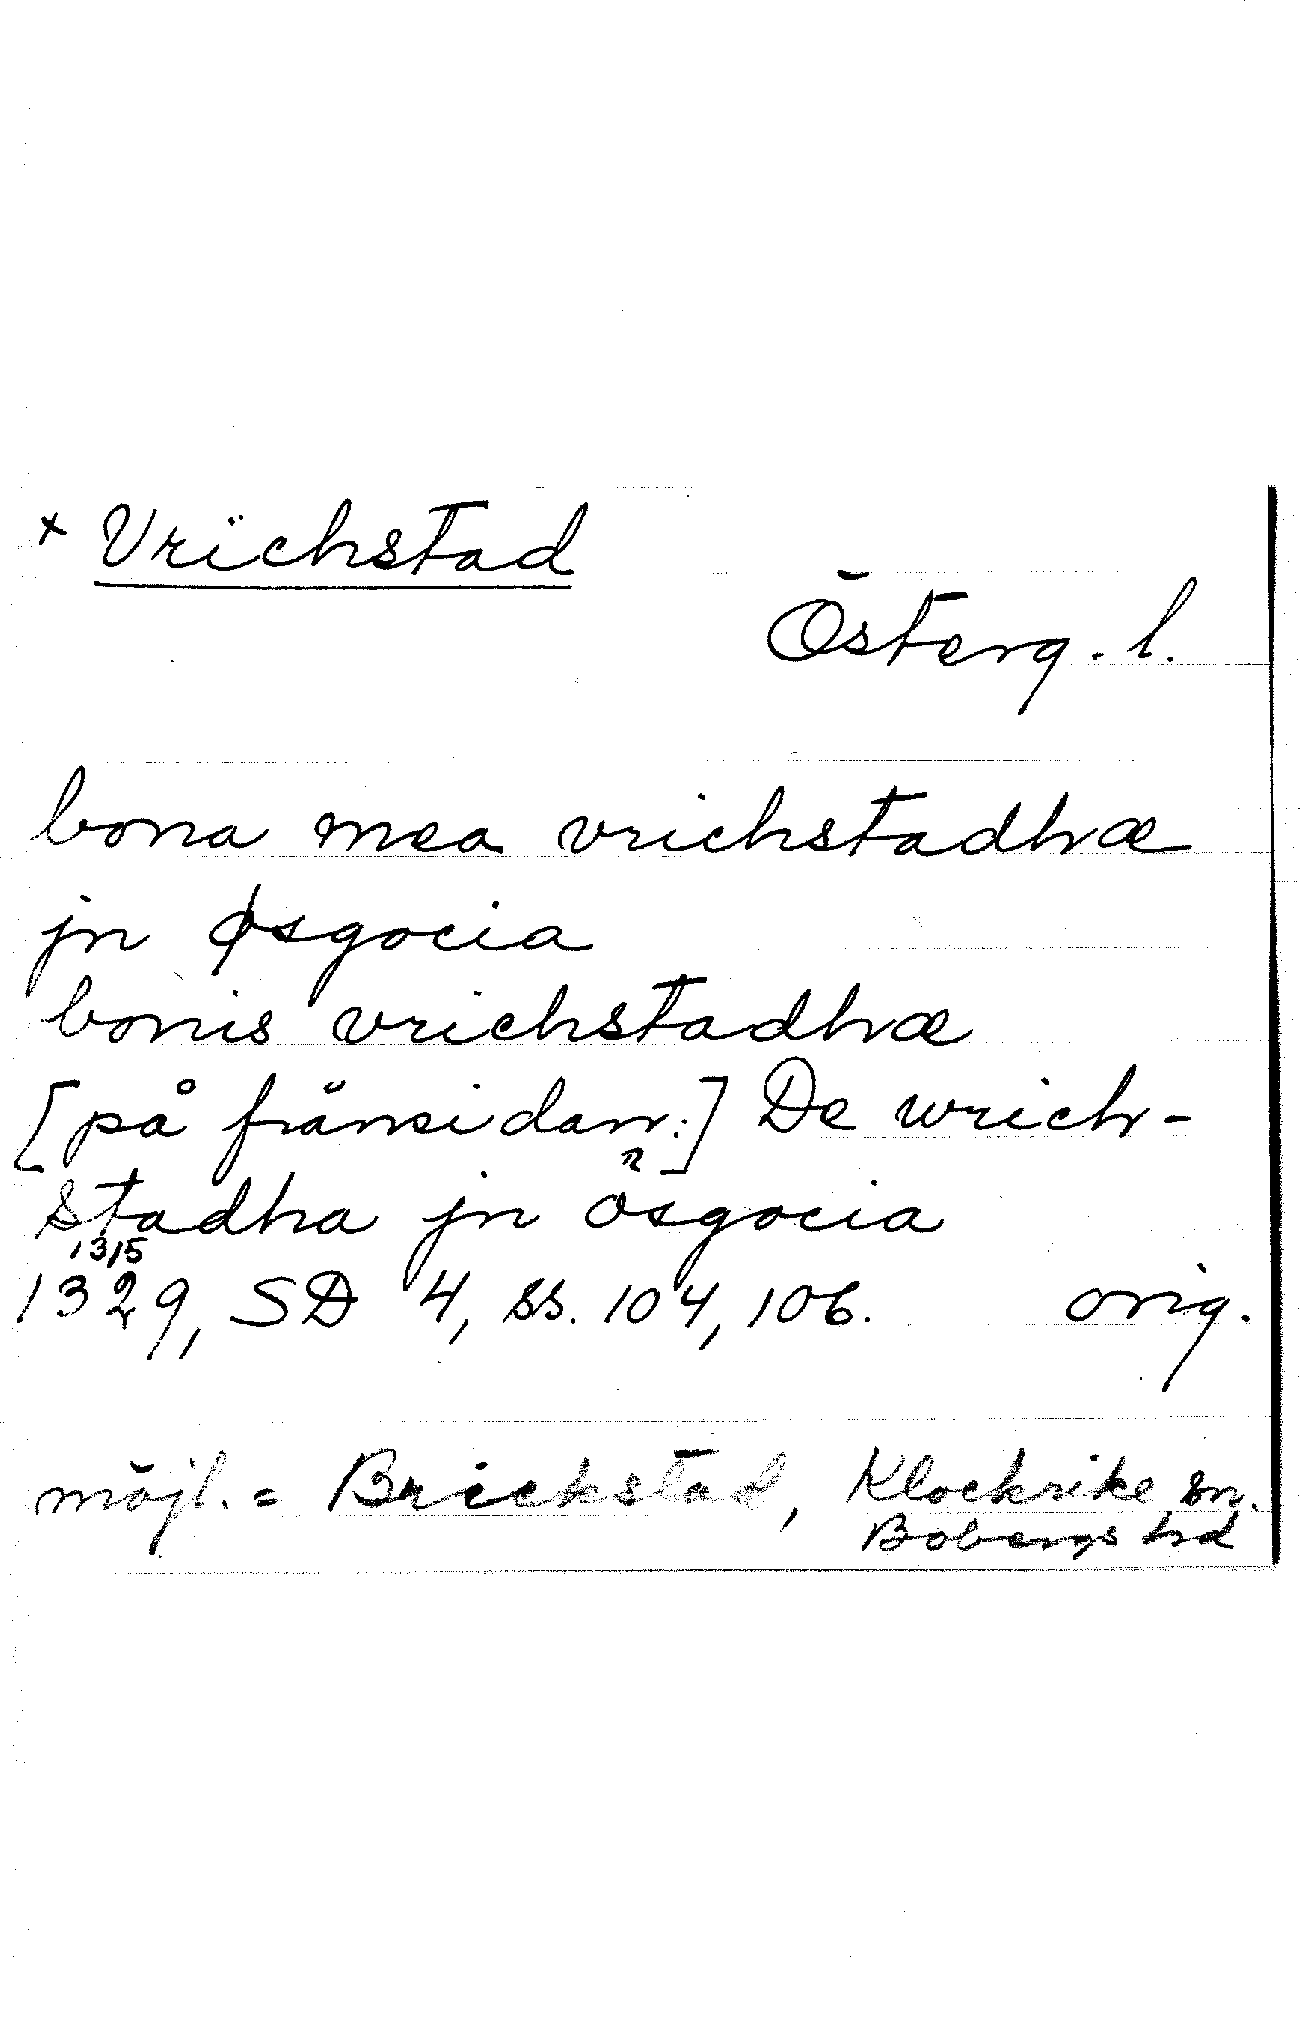 + Vrichstad
Österg. l.
bona mea vrichstadhæ
jn øsgocia
bonis vrichstadhæ
[på frånsidan:] De wrich-
stadha jn ösgocia
13/5
1329, SD 4, ss. 104, 106. orig.
möjl. = Brickstad, Klockrike sn.
Bobergs hd